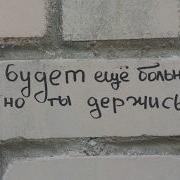 будет ещё больн
но ты держись